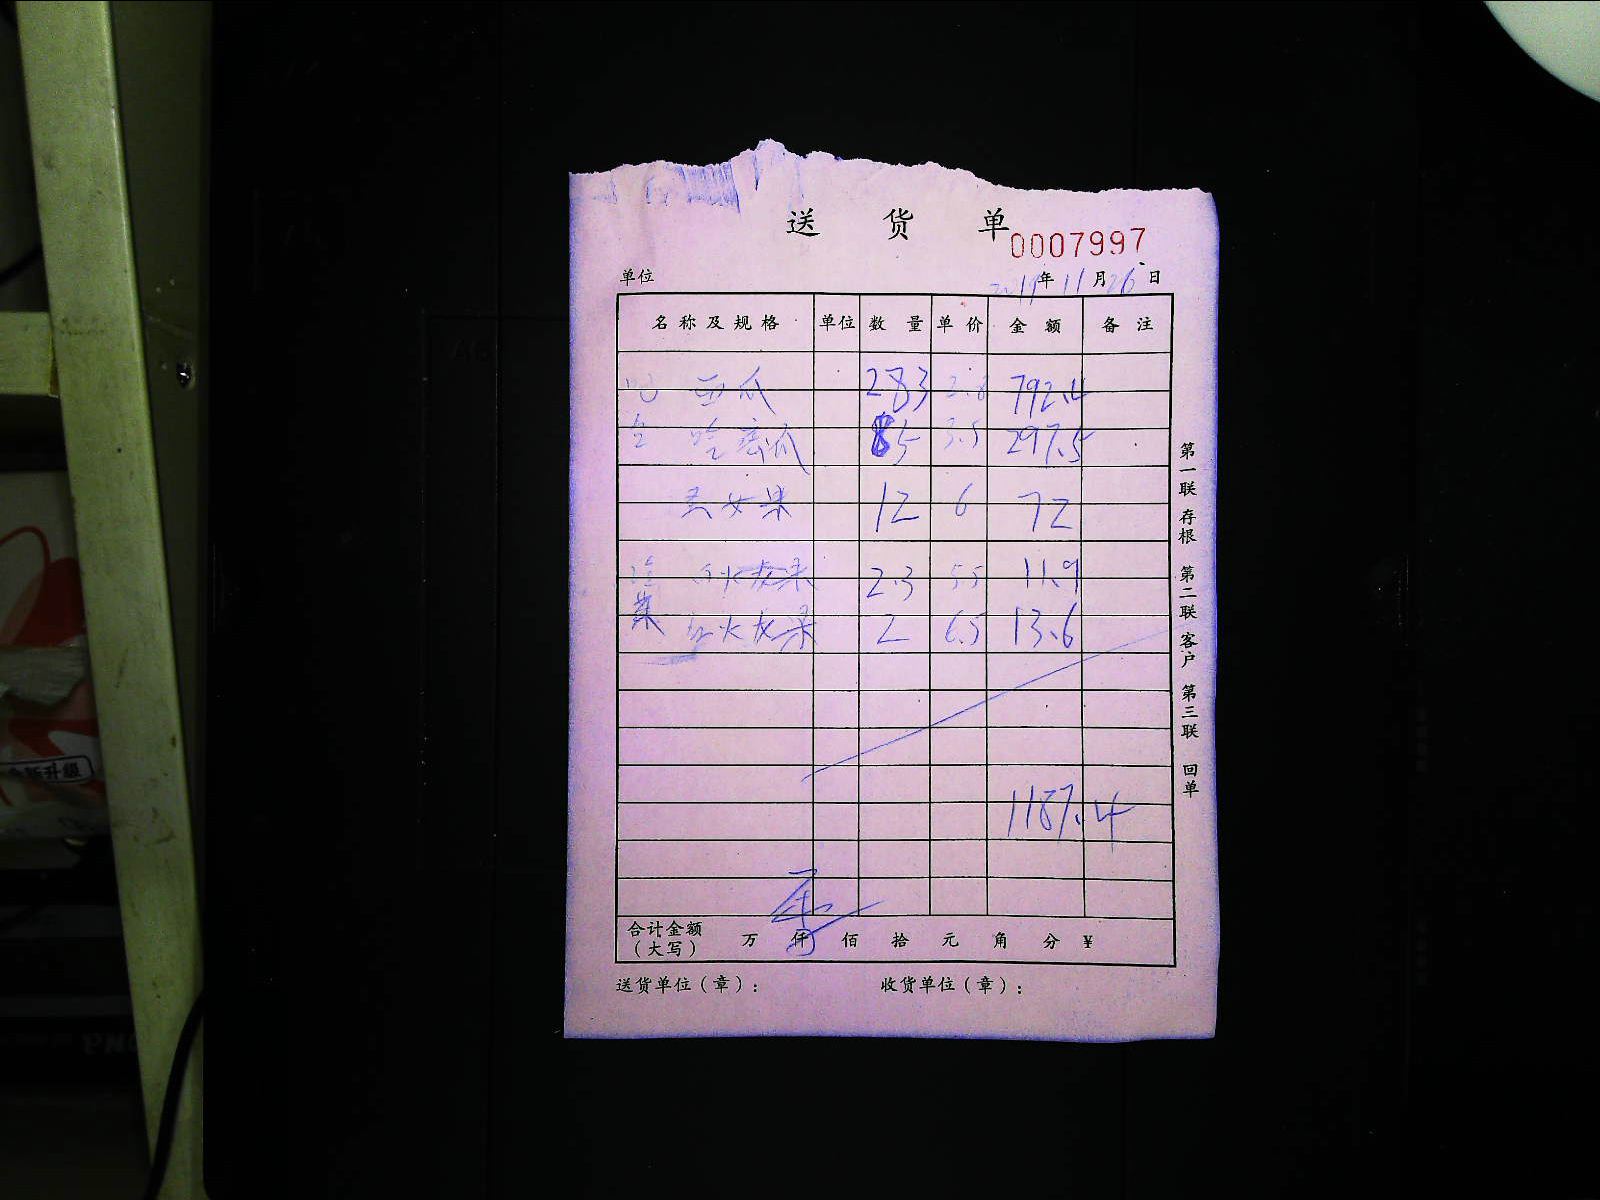 送货单
0007997
单位 2019年11月26日
名称及规格 单位 数量 单价 金额 备注
吧 西瓜 283 2.8 792.4
台 哈密瓜 85 3.5 297.5
圣女果 12 6 72
冷 白火龙果 2.3 5.5 11.9
菜 红火龙果 2 6.5 13.6
1187.4
合计金额
（大写） 万 仟 佰 拾 元 角 分 ¥
送货单位（章）： 收货单位（章）：
第一联 存根 第二联 客户 第三联 回单
全新升级